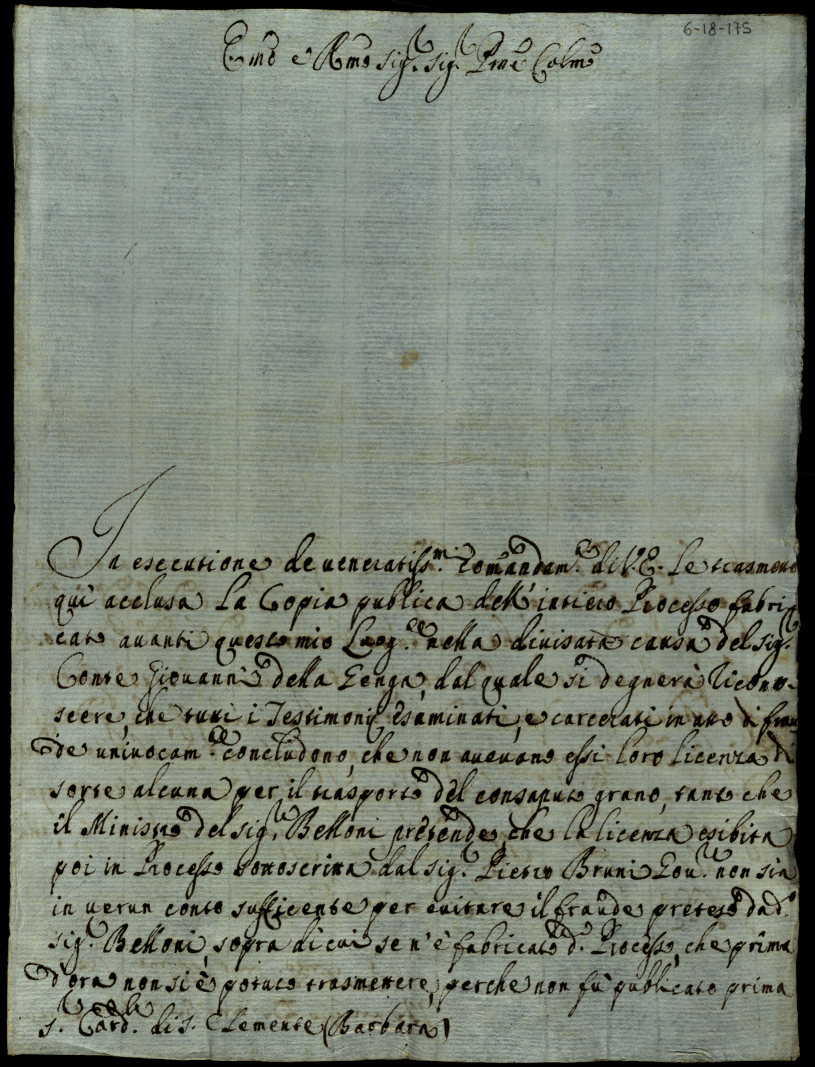 6-18-175
Emo e Rmo Sig.r Sig.r Prōne Colmo
In esecutione de veneratiss.mi comandam.ti di V.E. le trasmetto
quì acclusa la Copia publica dell'intiero Processo fabri-
cato avanti questo mio Luog.te nella divisata causa del sig.r
Conte Giovanni della Genga, dal quale si degnerà ricono-
scere, che tutti i Testimonij esaminati, e carcerati in atto di frau
de univocam.te concludono, che non avevano essi loro licenza di
sorte alcuna per il trasporto del consaputo grano, tanto che
il Ministro del sig.r Belloni pretende, che la licenza esibita
poi in Processo sottoscritta dal sig.r Pietro Bruni Gov.re non sia
in verun conto sufficente per evitare il fraude preteso da d.o
sig.r Belloni, sopra di cui se n'è fabricato d.o Processo, che prima
d'ora non si è potuto trasmettere, perche non fù publicato prima
s.r Card.le di S. Clemente (Barbara)